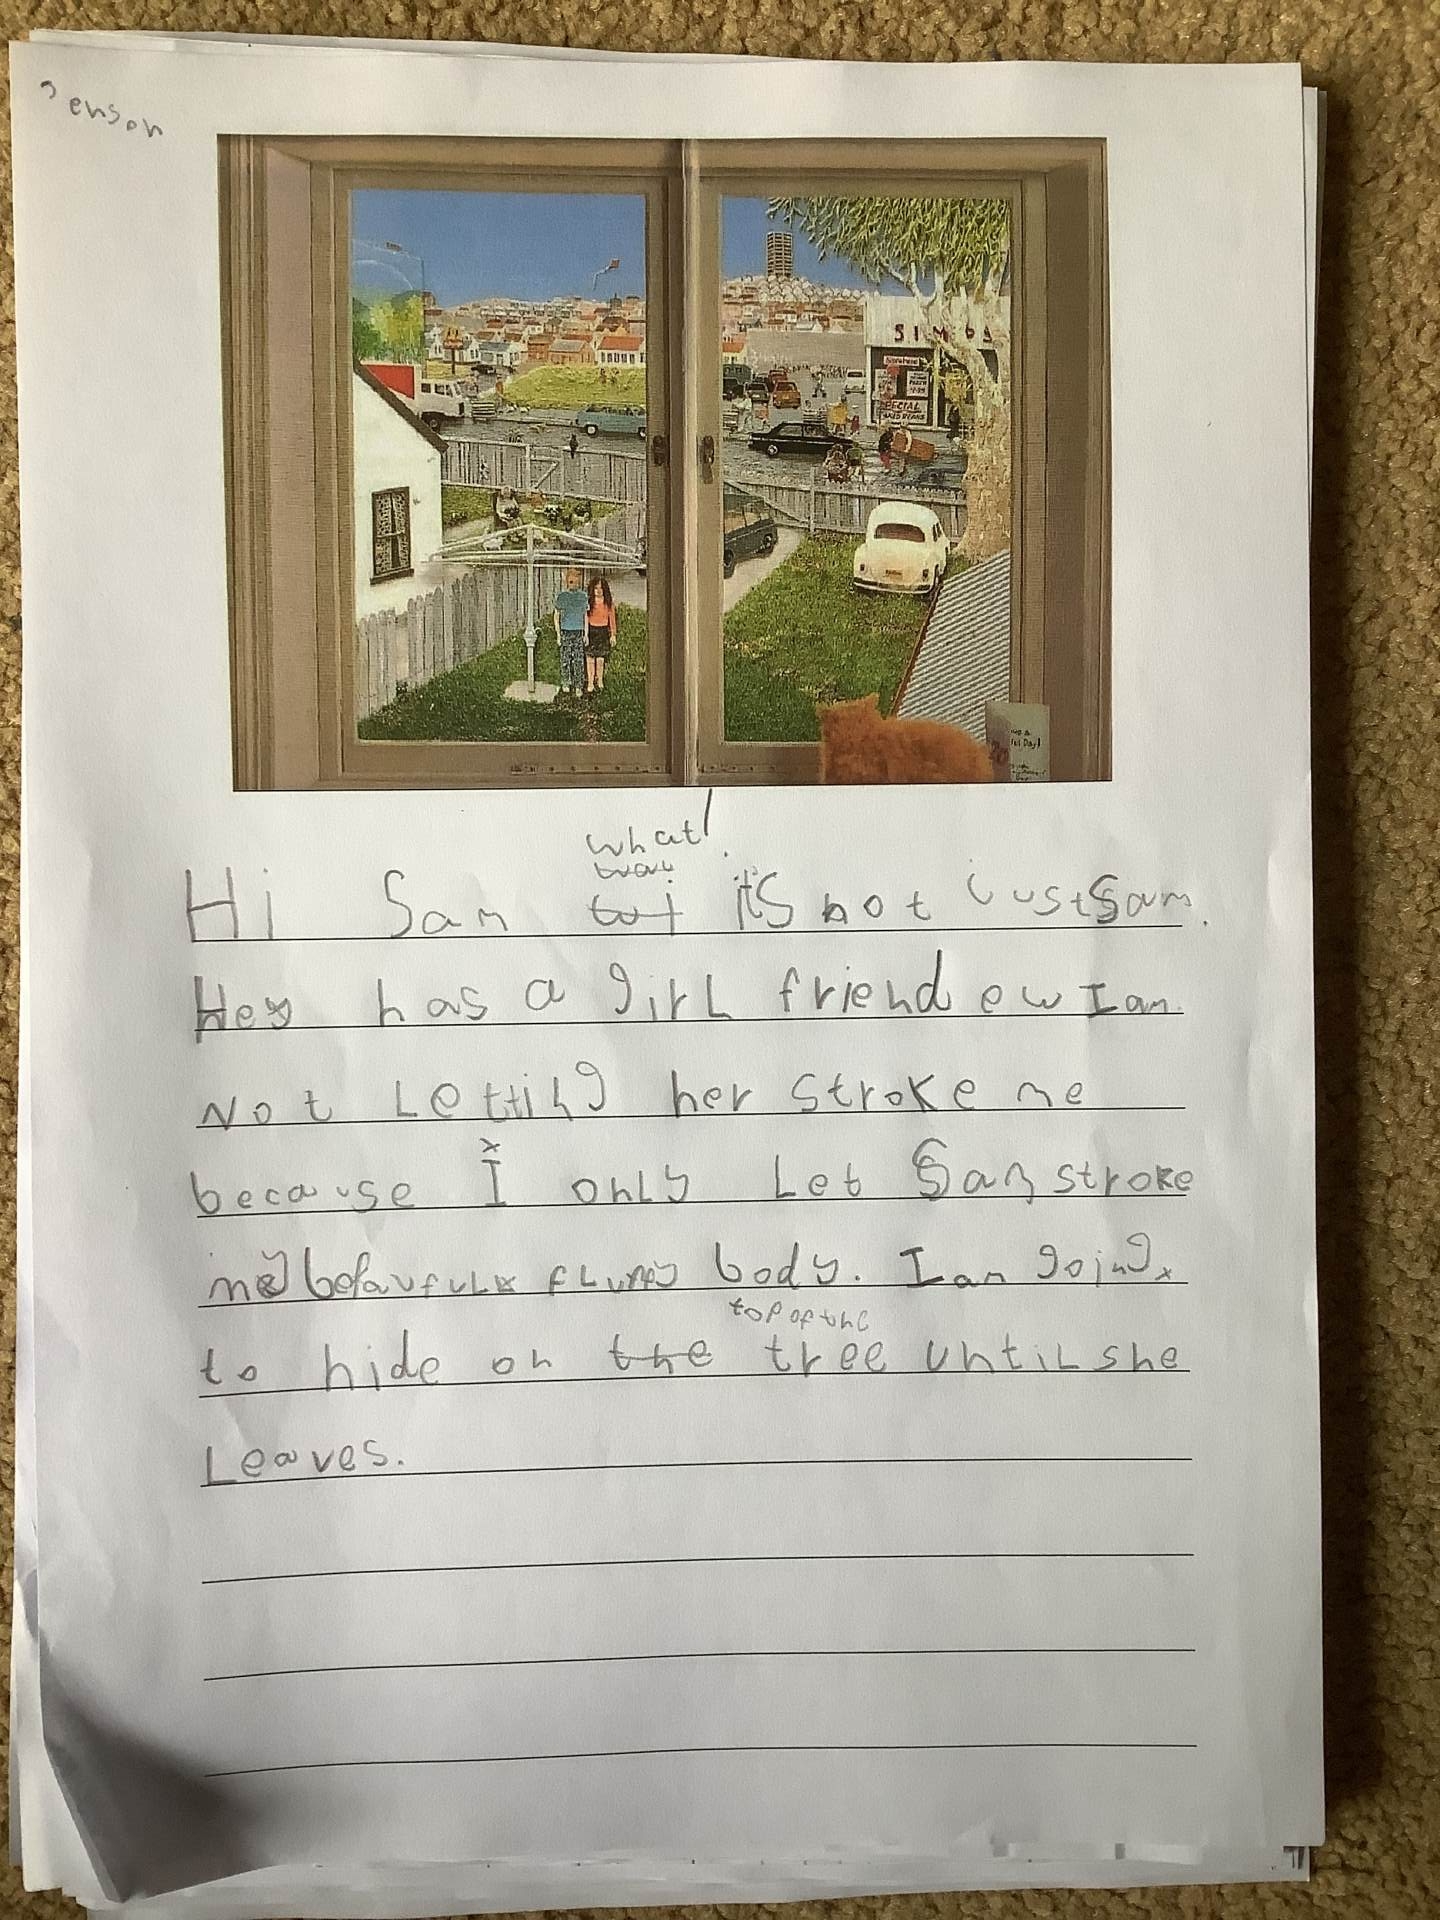 Jenson
SIMOS
SPECIAL
what!
wat
Hi Sam wt it's not just Sam.
Hey has a girL friend ew I am
Not Letting her stroke me
because I onLy Let Sam stroke
my befaufuL fLuffy body. I am going
top of the
to hide on the tree untiL she
Leaves.